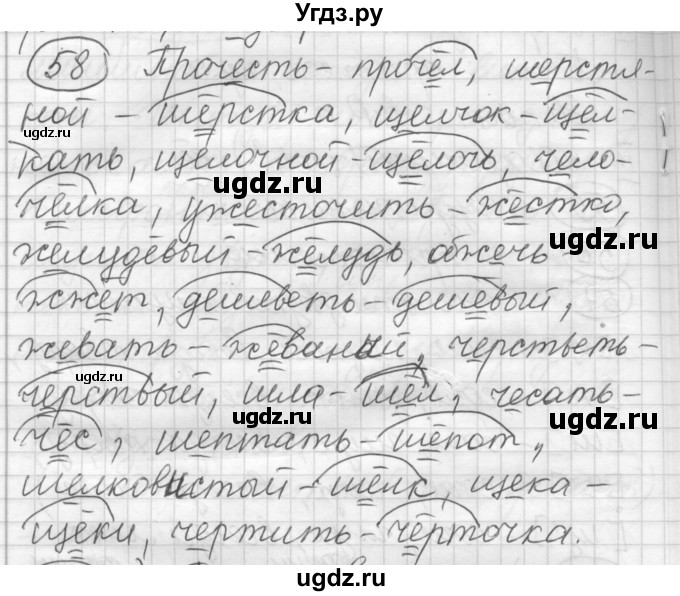 Угдз.ру
58 Прочесть - прочёл, шерстя-
ной - шёрстка, щелчок - щёл-
кать, щелочной - щёлочь, чело-
чёлка, ужесточить - жёстко,
желудёвый - жёлудь, обжечь -
жжёт, дешеветь - дешевый,
жевать - жёваный, черстветь -
чёрствый, шла - шёл, чесать -
чёс, шептать - шёпот,
шелковистый - шёлк, щека -
щёки, чертить - чёрточка.
ugdz.ru
ugdz.ru
ugdz.ru
ugdz.ru
ugdz.ru
ugdz.ru
ugdz.ru
ugdz.ru
ugdz.ru
ugdz.ru
ugdz.ru
ugdz.ru